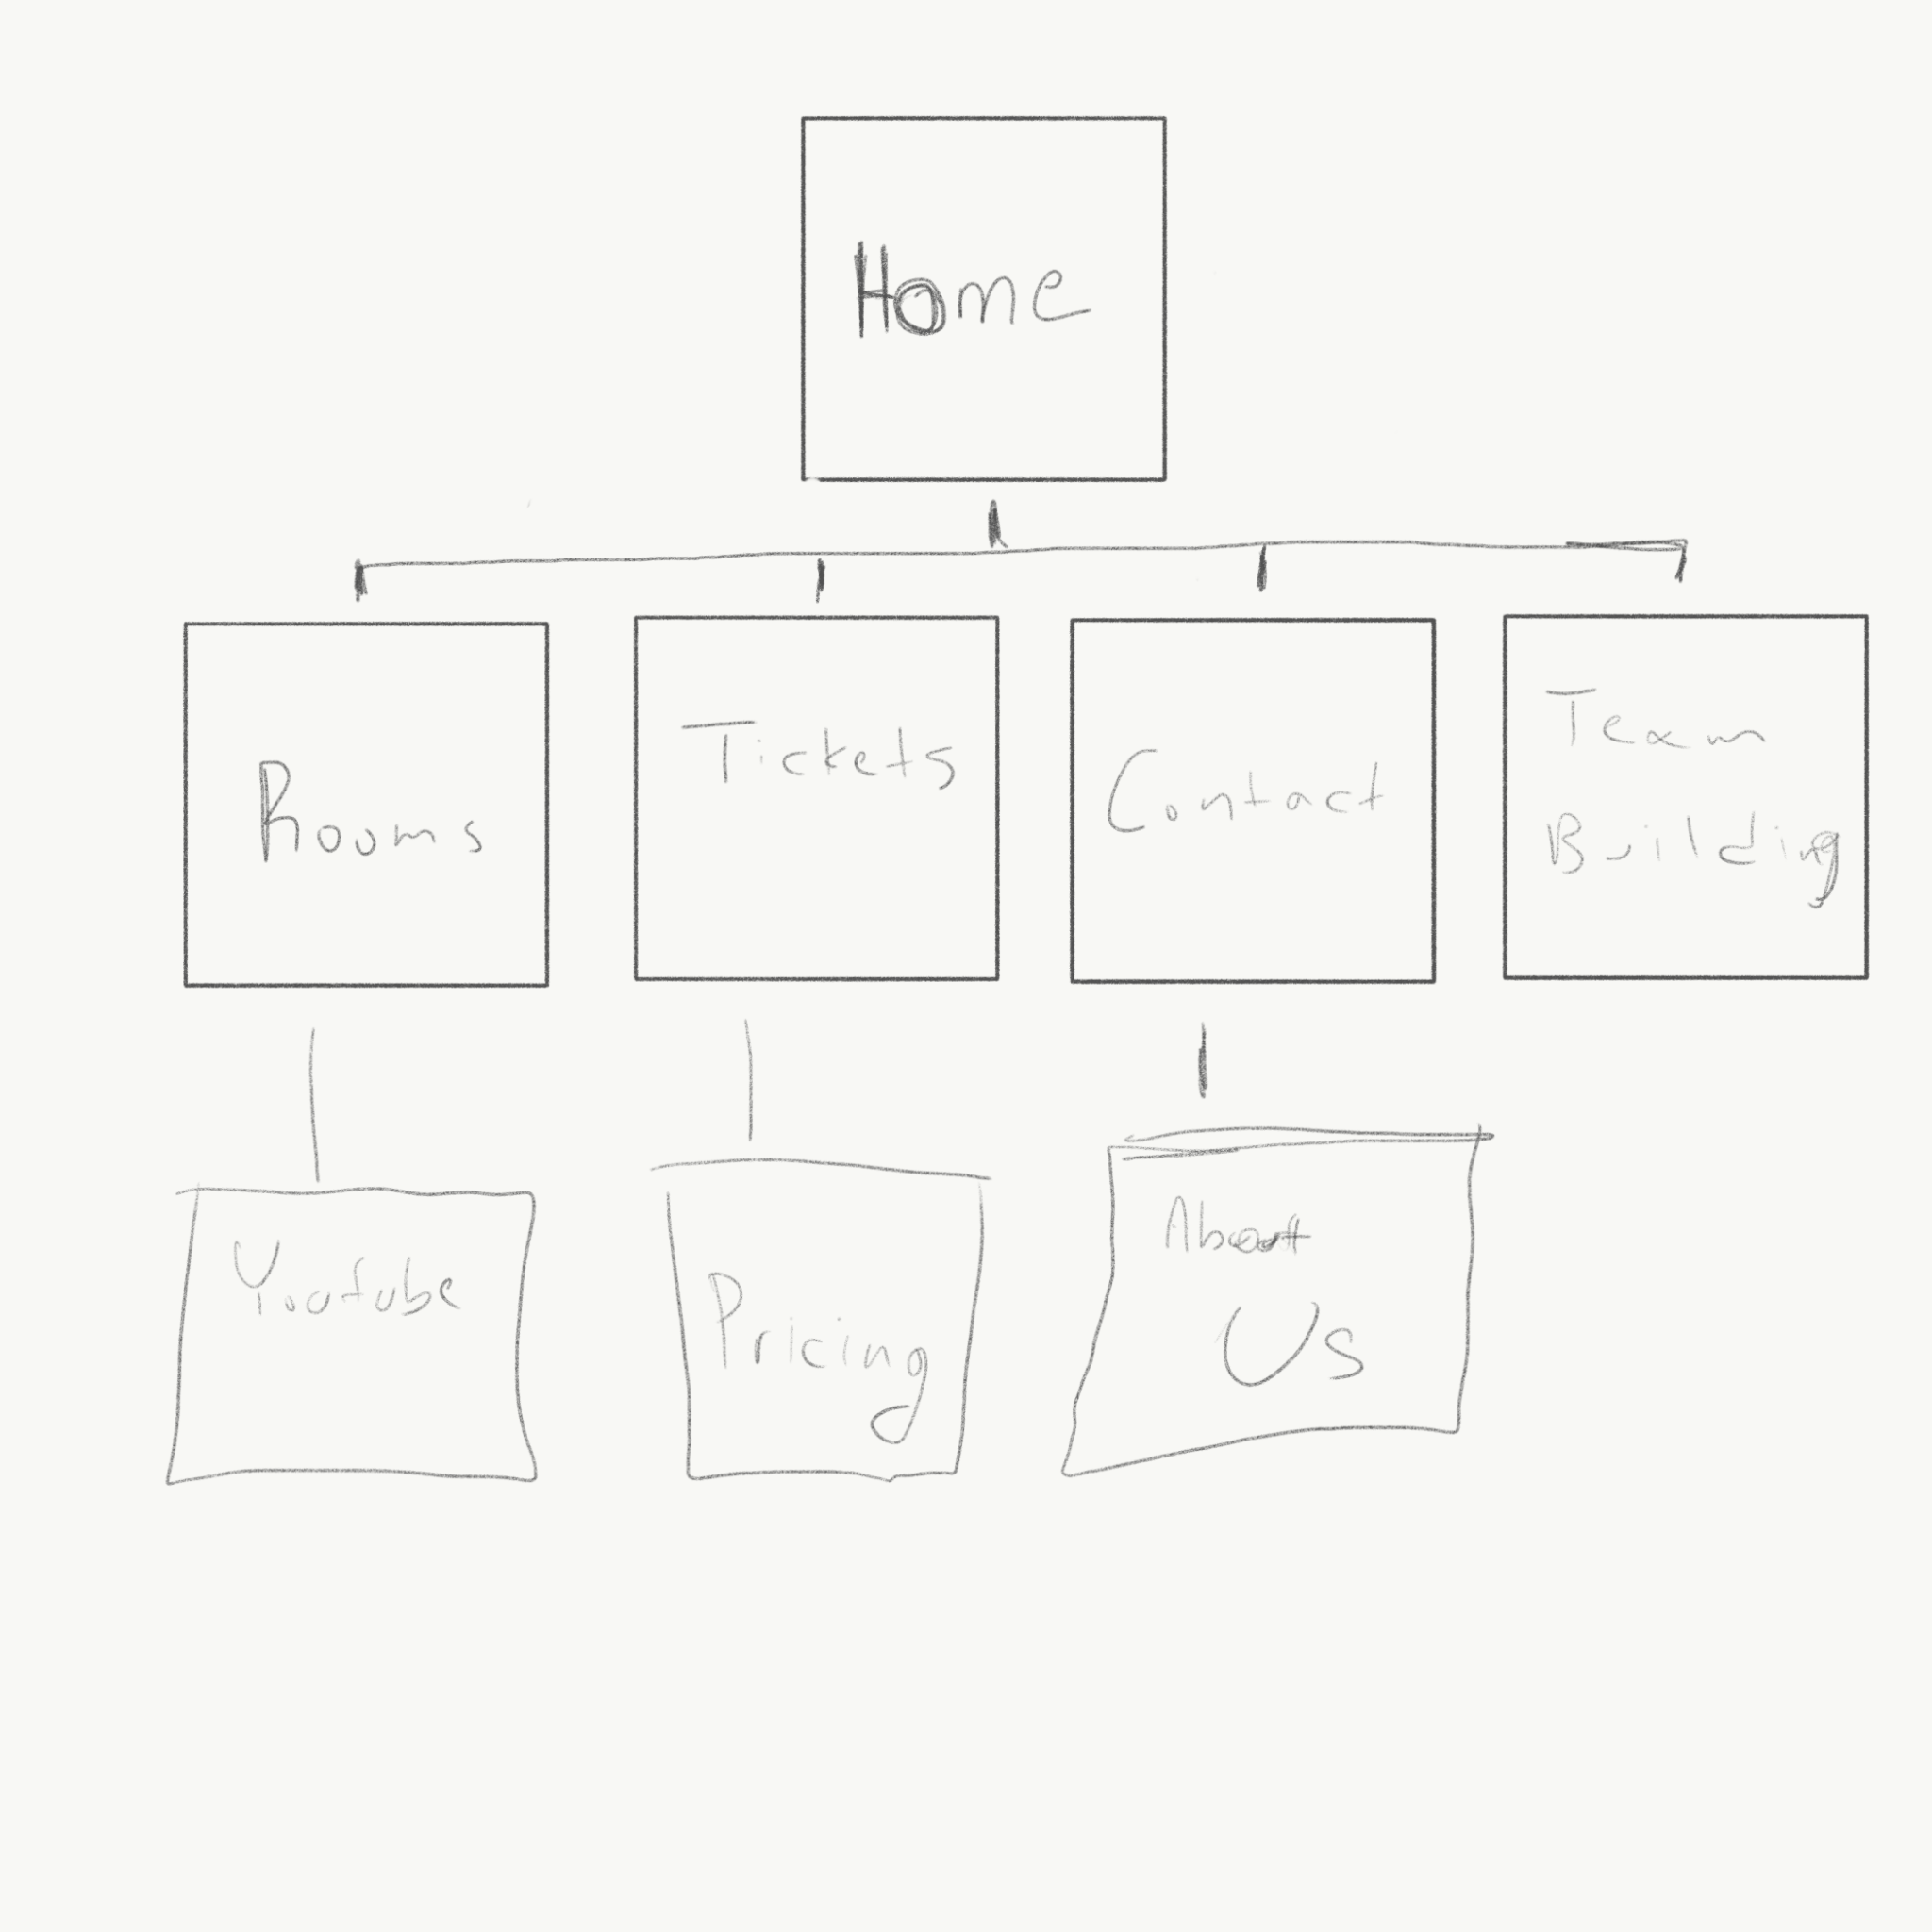 Home
Rooms
Tickets
Contact
Team
Building
Youtube
Pricing
About
Us